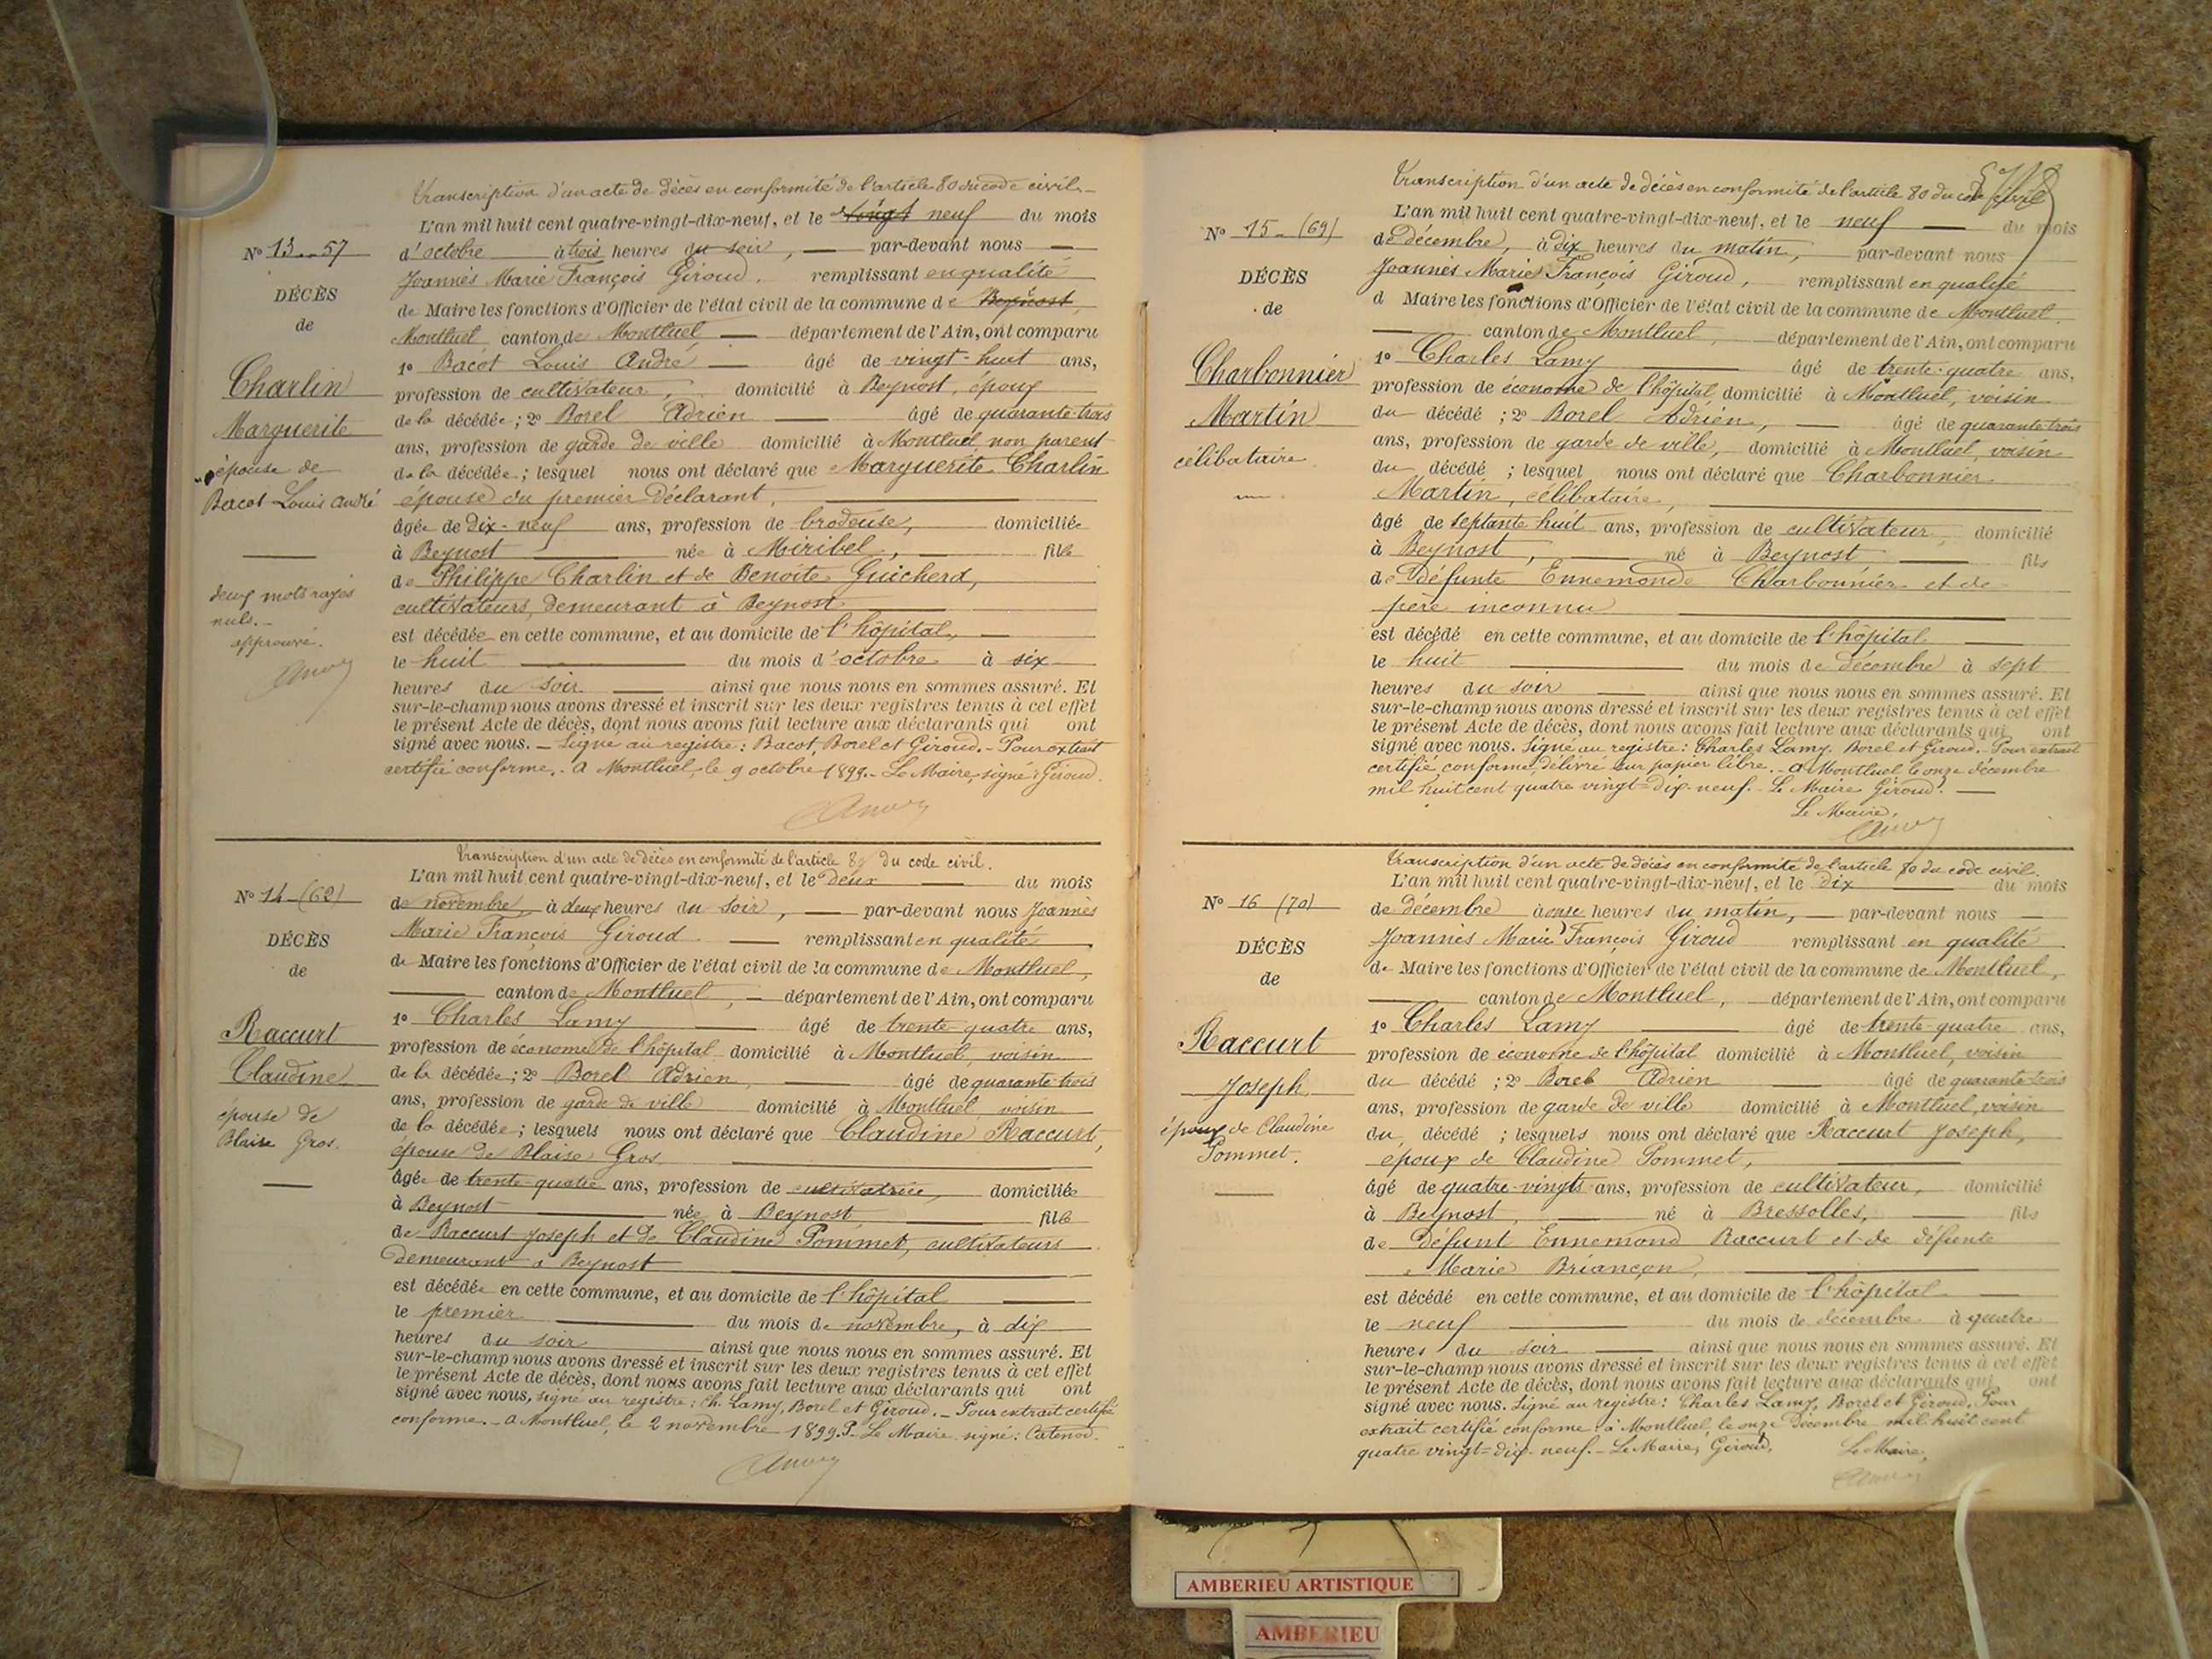 Transcription d'un acte de décès en conformité de l'article 80 du code civil.
L'an mil huit cent quatre-vingt-dix-neuf, et le vingt neuf du mois
d'octobre à trois heures du soir, par-devant nous
Joannès Marie François Giroud. remplissant en qualité
de Maire les fonctions d'Officier de l'état civil de la commune de Beynost,
Montluel canton de Montluel département de l'Ain, ont comparu
1º Bacot Louis André âgé de vingt-huit ans,
profession de cultivateur, domicilié à Beynost, époux
de la décédée ; 2º Borel Adrien âgé de quarante-trois
ans, profession de garde de ville domicilié à Montluel non parent
de la décédée ; lesquel nous ont déclaré que Marguerite Charlin
épouse du premier déclarant,
âgée de dix-neuf ans, profession de brodeuse, domiciliée
à Beynost née à Miribel, fille
de Philippe Charlin et de Benoîte Guicherd,
cultivateurs, demeurant à Beynost
est décédée en cette commune, et au domicile de l'hôpital,
le huit du mois d'octobre à six
heures du soir ainsi que nous nous en sommes assuré. Et
sur-le-champ nous avons dressé et inscrit sur les deux registres tenus à cet effet
le présent Acte de décès, dont nous avons fait lecture aux déclarants qui ont
signé avec nous. - Signé au registre : Bacot, Borel et Giroud. - Pour extrait
certifié conforme. - A Montluel, le 9 octobre 1899. - Le Maire, signé : Giroud.
Nº 13 - 57
DÉCÈS
de
Charlin
Marguerite
épouse de
Bacot Louis André
deux mots rayés
nuls. -
approuvé.
Transcription d'un acte de décès en conformité de l'article 80 du code civil.
L'an mil huit cent quatre-vingt-dix-neuf, et le deux du mois
de novembre à deux heures du soir, par-devant nous Joannès
Marie François Giroud remplissant en qualité
de Maire les fonctions d'Officier de l'état civil de la commune de Montluel,
canton de Montluel, département de l'Ain, ont comparu
1º Charles Lamy âgé de trente-quatre ans,
profession de économe de l'hôpital domicilié à Montluel, voisin
de la décédée ; 2º Borel Adrien, âgé de quarante-trois
ans, profession de garde de ville domicilié à Montluel, voisin
de la décédée ; lesquels nous ont déclaré que Claudine Raccurt,
épouse de Blaise Gros
âgée de trente-quatre ans, profession de cultivatrice, domiciliée
à Beynost née à Beynost fille
de Raccurt Joseph et de Claudine Pommet, cultivateurs
demeurant à Beynost
est décédée en cette commune, et au domicile de l'hôpital
le premier du mois de novembre, à dix
heures du soir ainsi que nous nous en sommes assuré. Et
sur-le-champ nous avons dressé et inscrit sur les deux registres tenus à cet effet
le présent Acte de décès, dont nous avons fait lecture aux déclarants qui ont
signé avec nous, signé au registre : Ch. Lamy, Borel et Giroud. - Pour extrait certifié
conforme. - A Montluel, le 2 novembre 1899. P. Le Maire signé : Catenod.
Nº 14 - (62)
DÉCÈS
de
Raccurt
Claudine
épouse de
Blaise Gros.
Transcription d'un acte de décès en conformité de l'article 80 du code civil
L'an mil huit cent quatre-vingt-dix-neuf, et le neuf du mois
de décembre, à dix heures du matin, par-devant nous
Joannès Marie François Giroud, remplissant en qualité
d Maire les fonctions d'Officier de l'état civil de la commune de Montluel
canton de Montluel, département de l'Ain, ont comparu
1º Charles Lamy âgé de trente-quatre ans,
profession de économe de l'hôpital, domicilié à Montluel, voisin
du décédé ; 2º Borel Adrien, âgé de quarante-trois
ans, profession de garde de ville, domicilié à Montluel, voisin
du décédé ; lesquel nous ont déclaré que Charbonnier
Martin, célibataire,
âgé de septante huit ans, profession de cultivateur, domicilié
à Beynost, né à Beynost fils
de défunte Ennemonde Charbonnier et de
père inconnu
est décédé en cette commune, et au domicile de l'hôpital
le huit du mois de décembre à sept
heures du soir ainsi que nous nous en sommes assuré. Et
sur-le-champ nous avons dressé et inscrit sur les deux registres tenus à cet effet
le présent Acte de décès, dont nous avons fait lecture aux déclarants qui ont
signé avec nous. Signé au registre : Charles Lamy, Borel et Giroud. - Pour extrait
certifié conforme, délivré sur papier libre. - A Montluel le onze décembre
mil huit cent quatre vingt-dix-neuf. - Le Maire Giroud. -
Le Maire,
Nº 15 - (69)
DÉCÈS
de
Charbonnier
Martin
célibataire
Transcription d'un acte de décès en conformité de l'article 80 du code civil.
L'an mil huit cent quatre-vingt-dix-neuf, et le dix du mois
de décembre à onze heures du matin, par-devant nous
Joannès Marie François Giroud remplissant en qualité
de Maire les fonctions d'Officier de l'état civil de la commune de Montluel,
canton de Montluel, département de l'Ain, ont comparu
1º Charles Lamy âgé de trente-quatre ans,
profession de économe de l'hôpital domicilié à Montluel, voisin
du décédé ; 2º Borel Adrien âgé de quarante-trois
ans, profession de garde de ville domicilié à Montluel, voisin
du décédé ; lesquels nous ont déclaré que Raccurt Joseph,
époux de Claudine Pommet,
âgé de quatre-vingts ans, profession de cultivateur, domicilié
à Beynost, né à Bressolles, fils
de défunt Ennemond Raccurt et de défunte
Marie Briançon,
est décédé en cette commune, et au domicile de l'hôpital
le neuf du mois de décembre à quatre
heures du soir ainsi que nous nous en sommes assuré. Et
sur-le-champ nous avons dressé et inscrit sur les deux registres tenus à cet effet
le présent Acte de décès, dont nous avons fait lecture aux déclarants qui ont
signé avec nous. Signé au registre : Charles Lamy, Borel et Giroud. Pour
extrait certifié conforme : à Montluel, le onze Décembre mil huit cent
quatre vingt-dix-neuf. - Le Maire, Giroud. Le Maire,
Nº 16 (70)
DÉCÈS
de
Raccurt
Joseph
époux de Claudine
Pommet.
AMBERIEU ARTISTIQUE
AMBERIEU